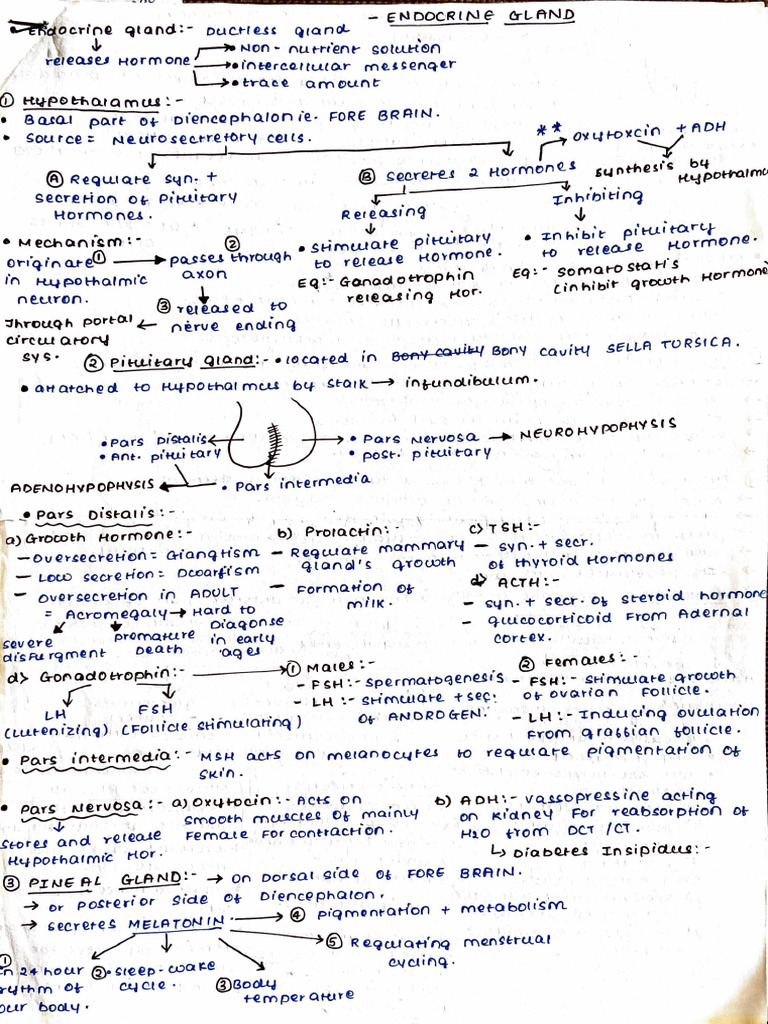 - ENDOCRINE GLAND
• Endocrine gland:- Ductless gland
releases Hormone → • Non-nutrient solution
→ • intercellular messenger
→ • trace amount
① Hypothalamus:-
• Basal part of Diencephalon ie. FORE BRAIN.
• Source = Neurosecretory cells.
** oxytoxcin + ADH
synthesis by Hypothalmu
Ⓐ Regulate syn. +
secretion of Pituitary
Hormones.
Ⓑ Secretes 2 Hormones
Releasing
• Stimulate pituitary
to release Hormone.
Eg:- Gonadotrophin
releasing Hor.
Inhibiting
• Inhibit pituitary
to release Hormone.
Eg:- Somatostatis
(inhibit growth Hormone
• Mechanism:-
originate ① → ② passes through
in Hypothalmic axon
neuron.
③ released to
nerve ending
Through portal ←
circulatory
sys.
② Pituitary gland:- • located in Bony cavity Bony cavity SELLA TURSICA.
• attatched to Hypothalmus by stalk → infundibulum.
• Pars Distalis
• Ant. pituitary
• Pars Nervosa → NEUROHYPOPHYSIS
• post. pituitary
ADENOHYPOPHYSIS ← • Pars intermedia
• Pars Distalis:-
a) Growth Hormone:-
- Oversecretion = Giangtism
- Low secretion = Dwarfism
- oversecretion in ADULT
= Acromegaly → Hard to
Diagonse
in early
ages
severe
disfurgment
premature
Death
b) Prolactin:-
- Regulate mammary
gland's growth
- Formation of
milk.
c) TSH:-
- syn. + secr.
of thyroid Hormones
d) ACTH:-
- syn. + secr. of steroid hormone
- glucocorticoid From Adernal
cortex.
d> Gonadotrophin:- →
LH FSH
(Lutenizing) (Follicle stimulating)
① Males:-
- FSH:- spermatogenesis
- LH:- stimulate + sec.
of ANDROGEN.
② Females:-
- FSH:- Stimulate growth
of ovarian Follicle.
- LH:- Inducing ovulation
From graffian follicle.
• Pars intermedia:- MSH acts on melanocytes to regulate pigmentation of
skin.
• Pars Nervosa:- a) Oxytocin:- Acts on
smooth muscles of mainly
Female For contraction.
Stores and release
Hypothalmic Hor.
b) ADH:- vassopressine acting
on Kidney For reabsorption of
H2O from DCT/CT.
↳ Diabetes Insipidus:-
③ PINEAL GLAND:- → on Dorsal side of FORE BRAIN.
→ or posterior side of Diencephalon.
→ secretes MELATONIN. → ④ pigmentation + metabolism
→ ⑤ Regulating menstrual
cycling.
①
In 24 hour
rythm of
our body.
② • sleep-wake
cycle.
③ Body
temperature